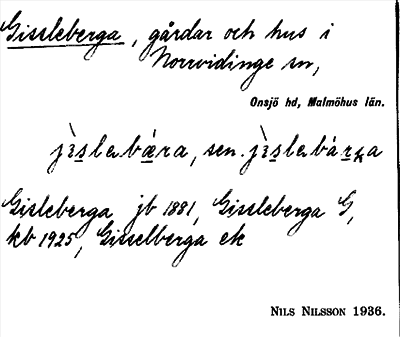 Gissleberga, gårdar och hus i
Norrvidinge sn,
Onsjö hd, Malmöhus län.
sen.
Gisleberga jb 1881, Gissleberga G,
kb 1925, Gisselberga ek
NILS NILSSON 1936.